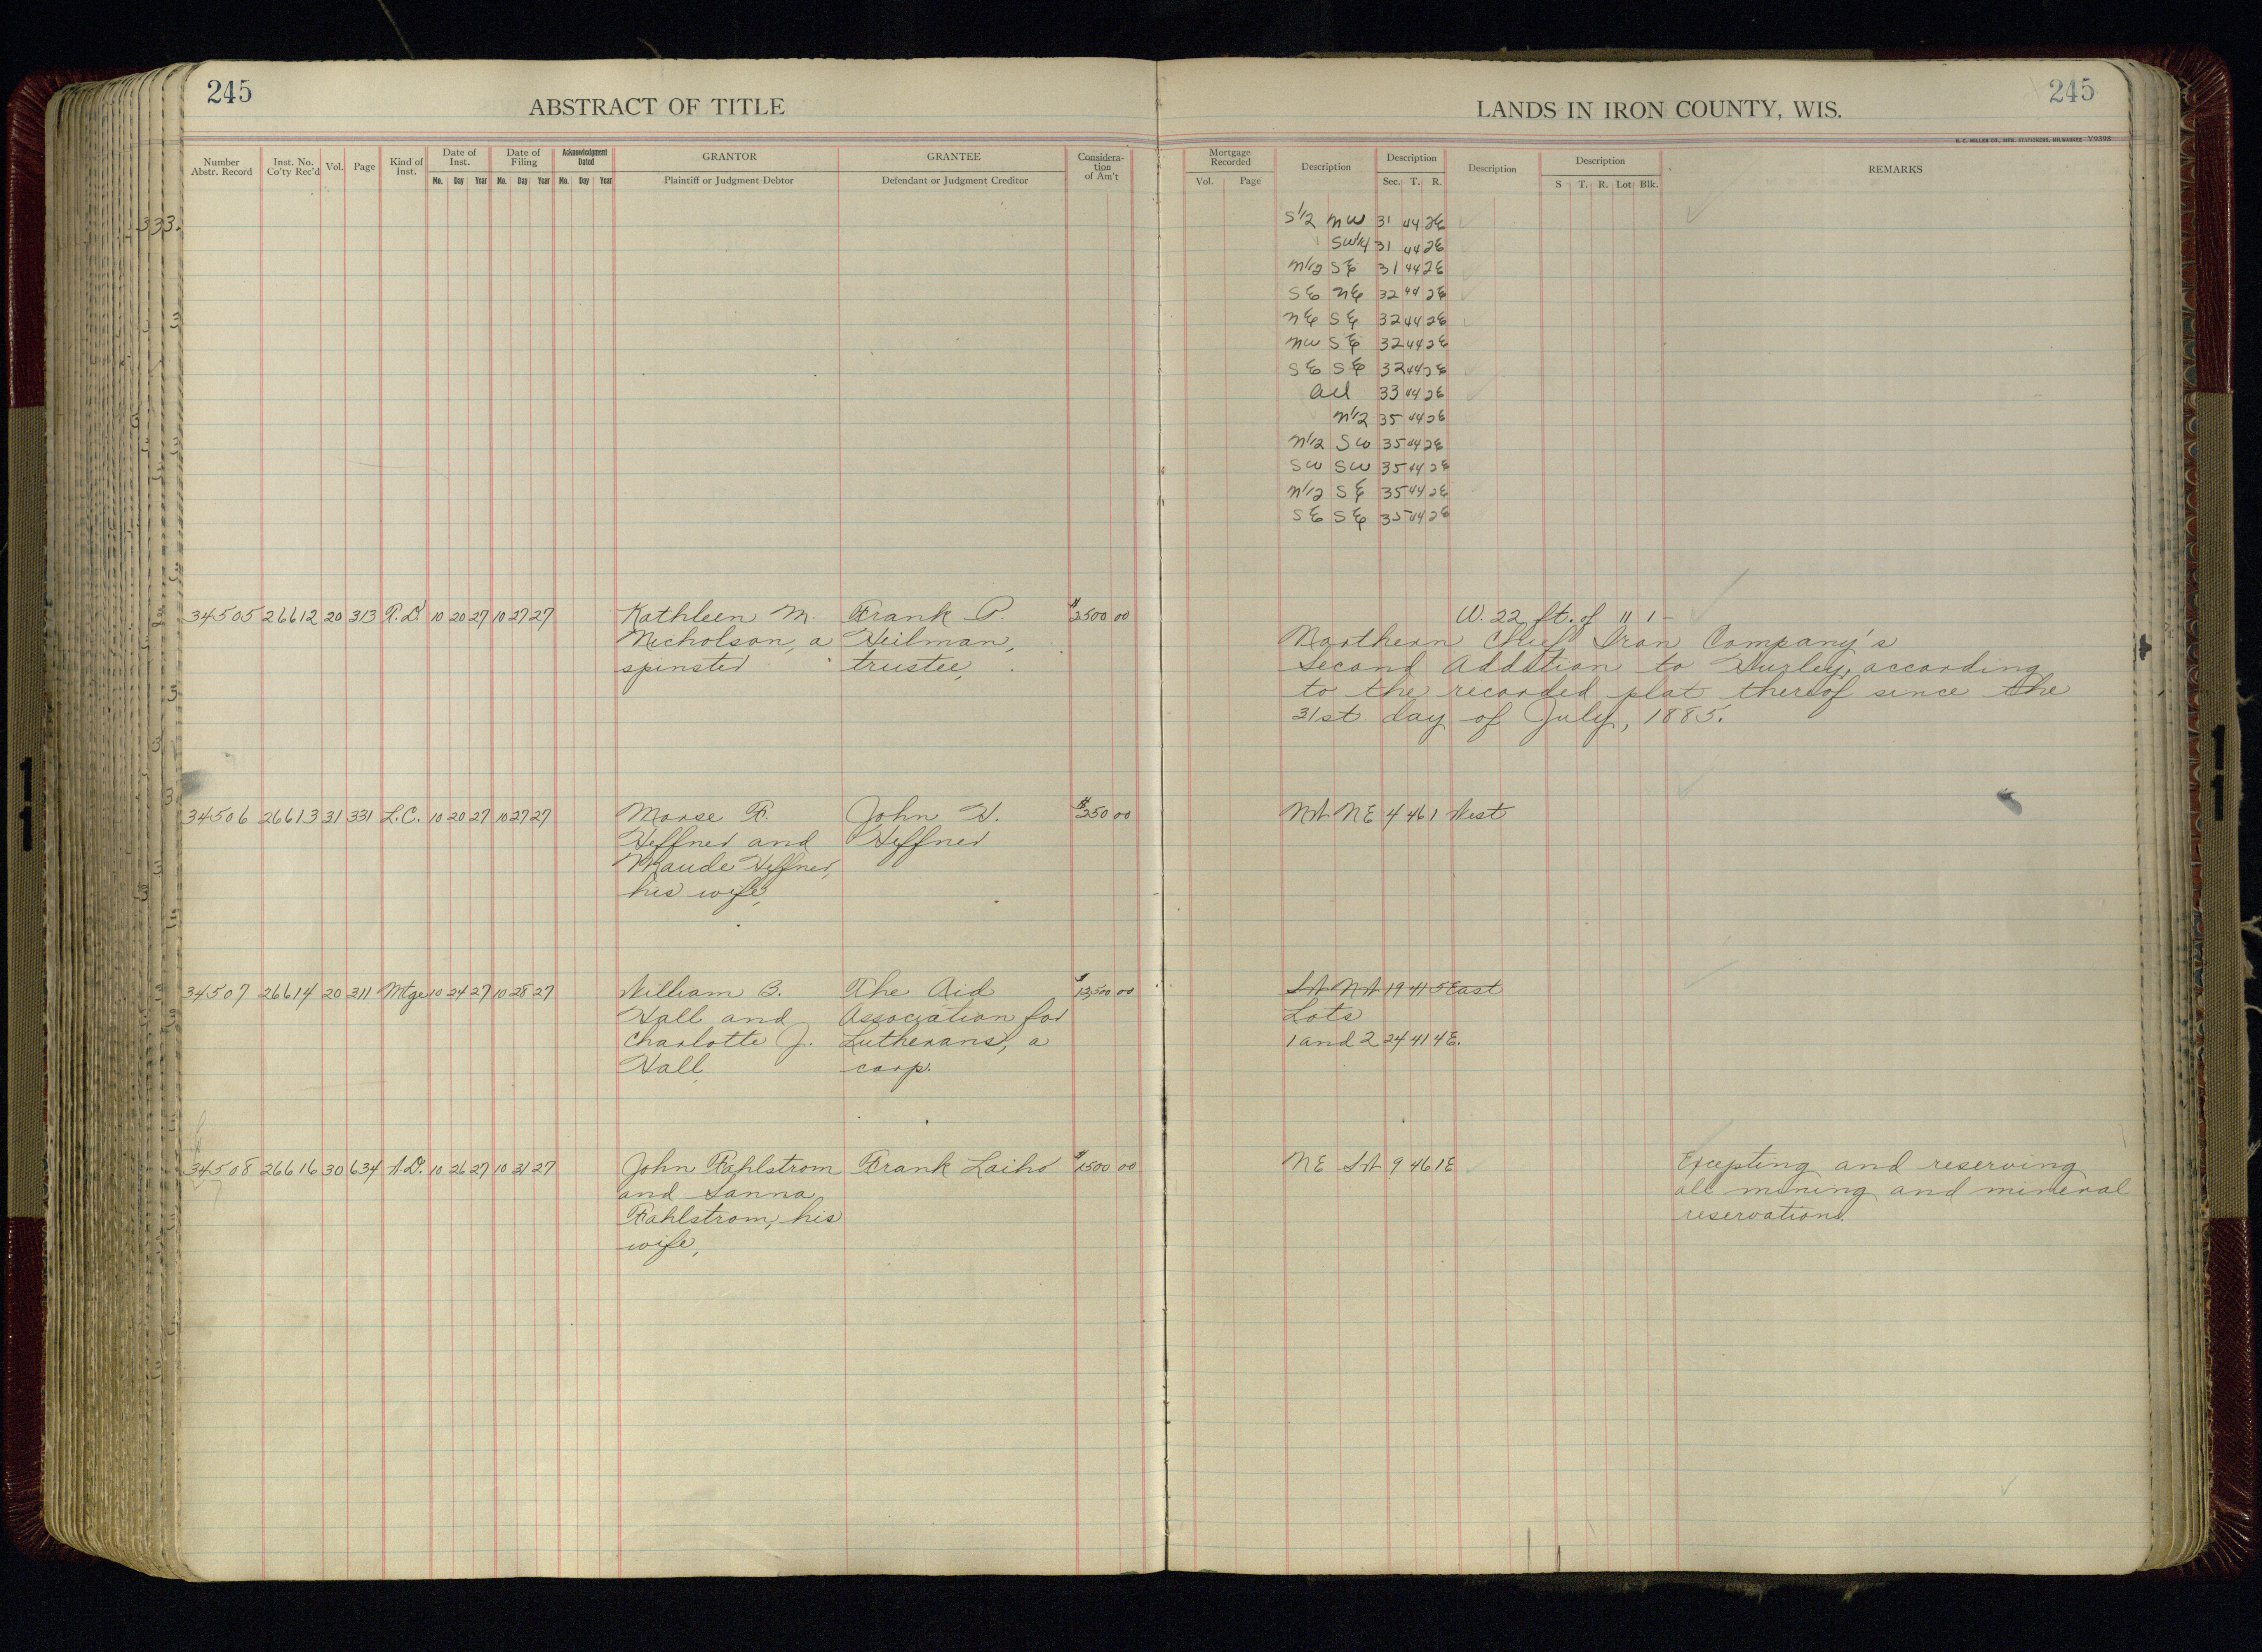 245
ABSTRACT OF TITLE
LANDS IN IRON COUNTY, WIS.
245
H. C. MILLER CO., MFG. STATIONERS, MILWAUKEE V9398
Number Abstr. Record
Inst. No. Co'ty Rec'd
Vol.
Page
Kind of Inst.
Date of Inst.
Mo. Day Year
Date of Filing
Mo. Day Year
Acknowledgment Dated
Mo. Day Year
GRANTOR
Plaintiff or Judgment Debtor
GRANTEE
Defendant or Judgment Creditor
Considera-
tion
of Am't
Mortgage Recorded
Vol. Page
Description
Description
Sec. T. R.
Description
Description
S T. R. Lot Blk.
REMARKS
S1/2 NW 31 44 2E
SW1/4 31 44 2E
N1/2 SE 31 44 2E
SE NE 32 44 2E
NE SE 32 44 2E
NW SE 32 44 2E
SE SE 32 44 2E
All 33 44 2E
N1/2 35 44 2E
N1/2 SW 35 44 2E
SW SW 35 44 2E
N1/2 SE 35 44 2E
SE SE 35 44 2E
34505 26612 20 313 10 20 27 10 27 27 Kathleen M. Frank P. $2500 00 W. 22 ft. of 11 1 -
Nicholson, a Heilman, Northern Chief Iron Company's
spinster trustee, Second Addition to Hurley, according
to the recorded plat thereof since the
31st day of July, 1885.
34506 26613 31 331 L.C. 10 20 27 10 27 27 Morse F. John H. $250 00 NW NE 4 46 1 West
Heffner and Heffner
Maude Heffner,
his wife,
34507 26614 20 311 Mtge 10 24 27 10 28 27 William B. The Aid $12,500 00 SW NW 19 41 5 East
Hall and Association for Lots
Charlotte J. Lutherans, a 1 and 2 24 41 4E.
Hall, corp.
34508 26616 30 634 W.D. 10 26 27 10 31 27 John Fahlstrom Frank Laiho $1500 00 NE SW 9 46 1E Excepting and reserving
and Sanna all mining and mineral
Fahlstrom, his reservations.
wife,